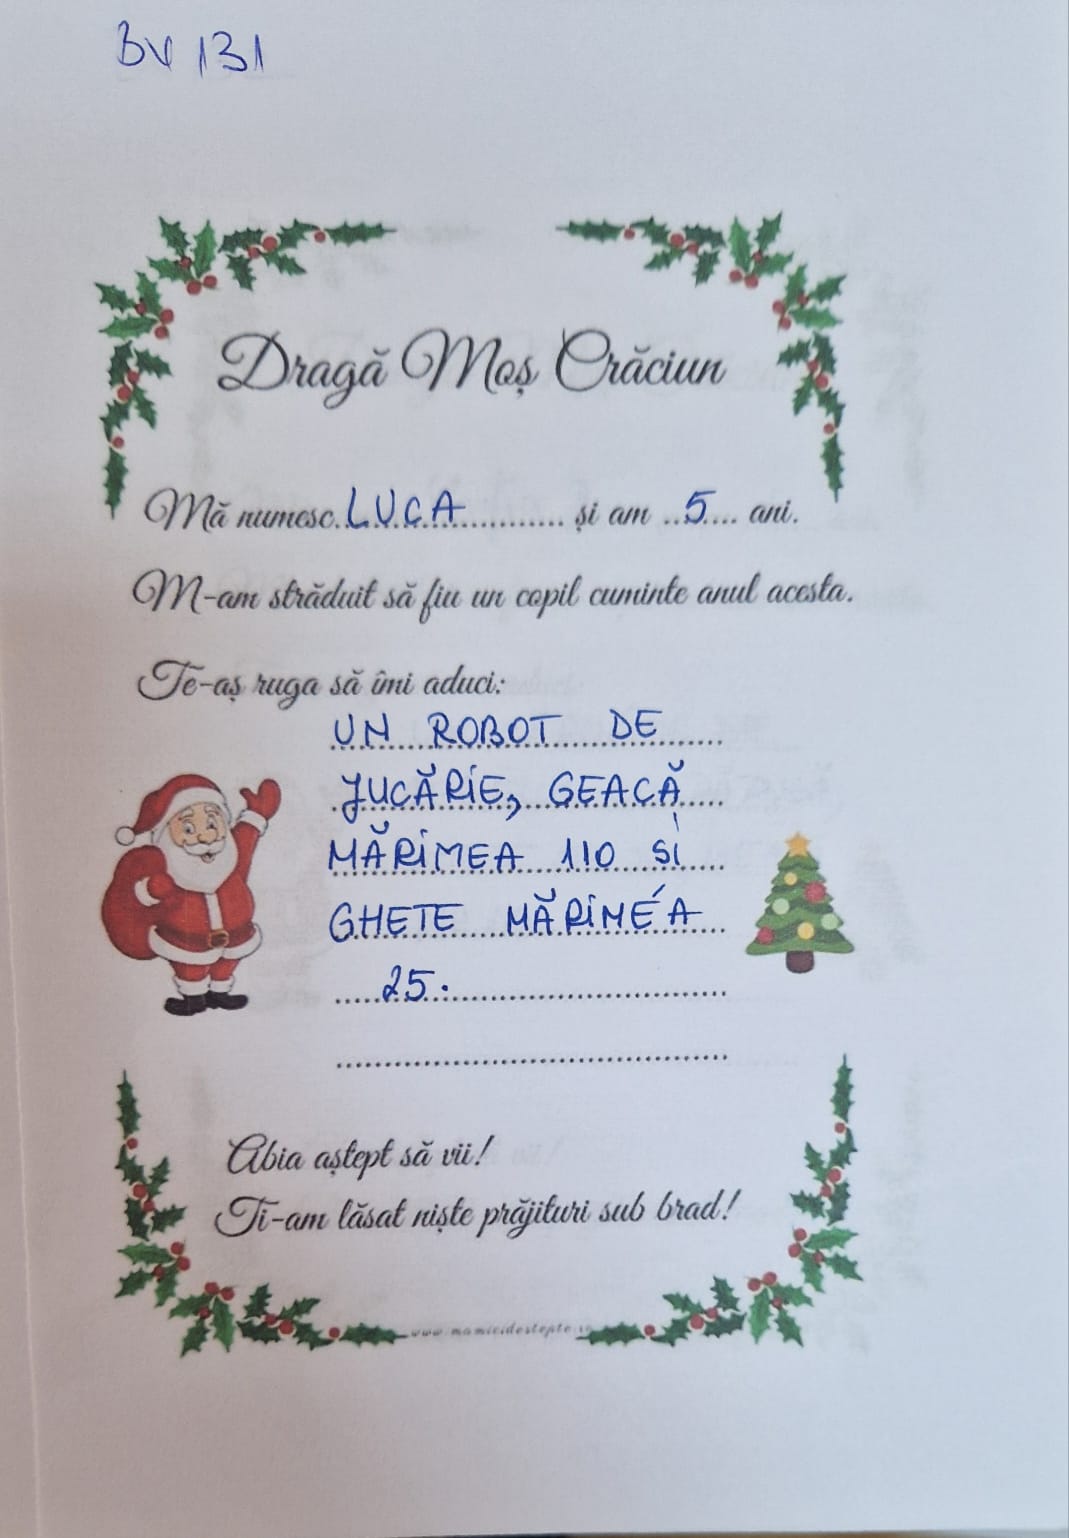 BV 131
Dragă Moș Crăciun
Mă numesc.LUCA............ și am ..5.... ani.
M-am străduit să fiu un copil cuminte anul acesta.
Te-aș ruga să îmi aduci:
UN ROBOT DE
JUCĂRÍE, GEACĂ
MĂRÍMEA 110 SI
GHETE MĂRIMÉA
25.
Abia aștept să vii!
Ti-am lăsat niște prăjituri sub brad!
www.mamicidestepte.ro